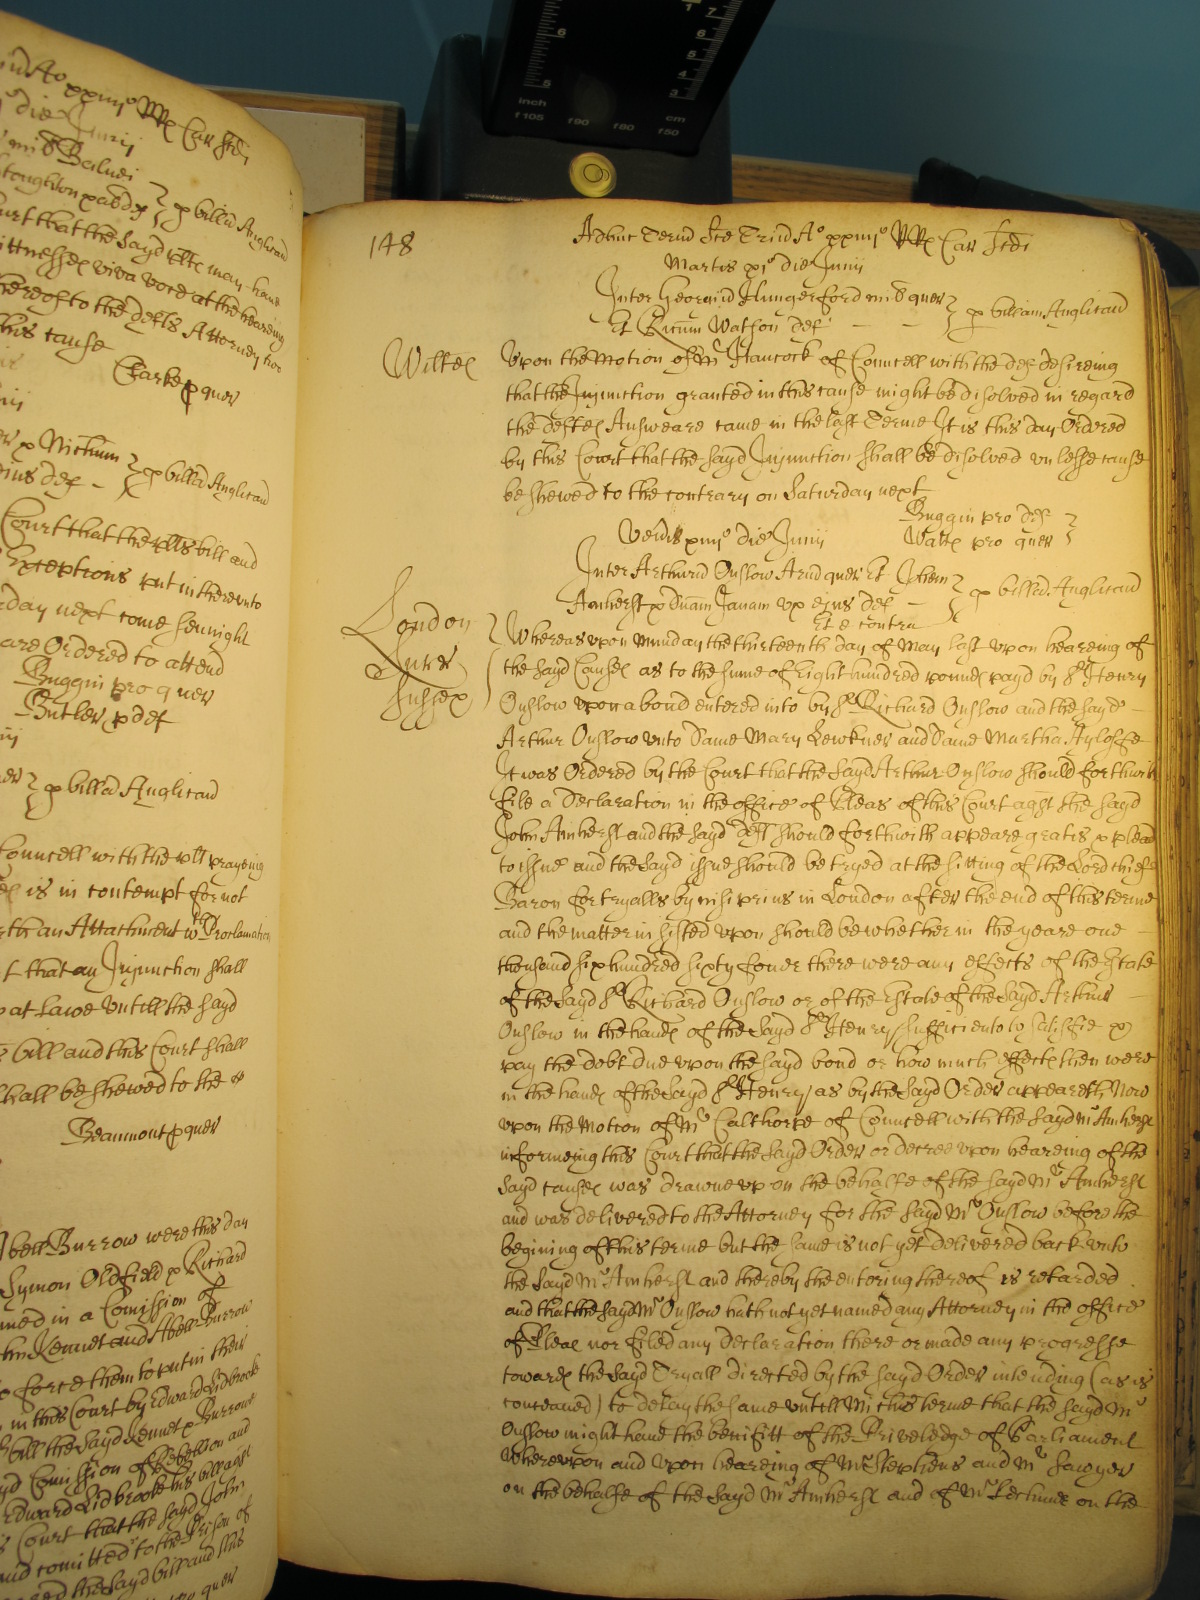 inch
cm
f105 f90 f80 f50
6
5
1
7
6
5
4
3
die Junij
Bailudi
p billam Anglicand
Court that the sayd plts may have
wittnesses viva voce at the heareing
thereof to the defts Attorney
this cause
Clarke p quer
p billa Anglicand
Court that the plts bill and
Exceptions put in thereunto
day next come sennight
are Ordered to attend
Buggin pro quer
Butler p def
p billa Anglicand
Councell with the plt prayeing
is in contempt for not
an Attachment wth Proclamation
that an Injunction shall
at Lawe untill the sayd
bill and this Court shall
shall be shewed to the
Beaumont p quer
Abell Burrow were this day
Symon Oldfield & Richard
named in a Comission of
Kennet and Abell Burrow
force them to put in their
in this Court by Edward Lidbrooke
bill the sayd Kennet & Burrow
Comission of Rebellion and
Edward Lidbrooke his bill agst
Court that the sayd John
and comitted to the Prison of
the sayd bill and this
quer
148
Adhuc Termd Sce Trind Ao xxiiijo RRs Car Scdi
Martis xjo die Junij
Inter Georgiu Hungerford mid quer
Et Ricum Watson def
p billam Anglicand
Wiltes
Upon the Motion of Mr Hancock of Councell with the def desireing
that the Injunction granted in this cause might be disolved in regard
the deftes Answeare came in the last Terme It is this day Ordered
by this Court that the sayd Injunction shall be disolved unlesse cause
be shewed to the contrary on Saturday next
Buggin pro def
Watts pro quer
Veneris xiiijo die Junij
Inter Arthurd Onslow Armd quer Et Johem
Amherst & Dnam Janam ux ejus def
Et e contra
p billad Anglicand
London
Surr
Sussex
Whereas upon Munday the thirteenth day of May last upon heareing of
the sayd Causes as to the sume of Eight hundred pounds payd by Sr Henry
Onslow upon a bond entered into by Sr Richard Onslow and the sayd
Arthur Onslow unto Dame Mary Lewkner and Dame Martha Aylosse
It was Ordered by the Court that the sayd Arthur Onslow should forthwith
file a Declaration in the office of Pleas of this Court agst the sayd
John Amherst and the sayd deft should forthwith appeare gratis & plead
to issue and the sayd issue should be tryed at the sitting of the Lord chiefe
Baron for tryalls by nisi prius in London after the end of this terme
and the matter insisted upon should be whether in the yeare one
thousand six hundred sixty fower there were any effects of the Estate
of the sayd Sr Richard Onslow or of the Estate of the sayd Arthur
Onslow in the hands of the sayd Sr Henry sufficient to satisfie &
pay the debt due upon the sayd bond or how much effects then were
in the hands of the sayd Sr Henry as by the sayd Order appeareth Now
upon the Motion of Mr Calthorpe of Councell with the sayd Mr Amherst
informeing this Court that the sayd Order or decree upon heareing of the
sayd causes was drawne up on the behalfe of the sayd Mr Amherst
and was delivered to the Attorney for the sayd Mr Onslow before the
begining of this terme but the same is not yet delivered back unto
the sayd Mr Amherst and thereby the entering thereof is retarded
and that the sayd Mr Onslow hath not yet named any Attorney in the office
of Pleas nor filed any Declaration there or made any progresse
towards the sayd Tryall directed by the sayd Order intending (as is
conceaved) to delay the same untill Michs terme that the sayd Mr
Onslow might have the benifitt of the Priveledge of Parliament
Whereupon and upon heareing of Mr Stephens and Mr Sawyer
on the behalfe of the sayd Mr Amherst and of Mr Lechmer on the